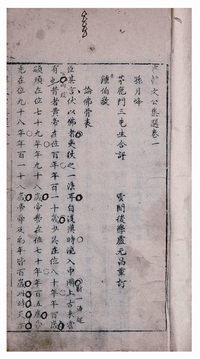 文公集選卷一
孫月峰
茅鹿門三先生合評
鍾伯敬
雲間後學盧元昌重訂
論佛骨表
臣某言伏以佛者夷狄之一法耳自後漢時流入中國上古未嘗
有也昔者黃帝在位百年年百一十歲少昊在位八十年年百歲
顓頊在位七十九年年九十八歲帝嚳在位七十年年百五歲帝
堯在位九十八年年百一十八歲帝舜及禹年皆百歲此時天下